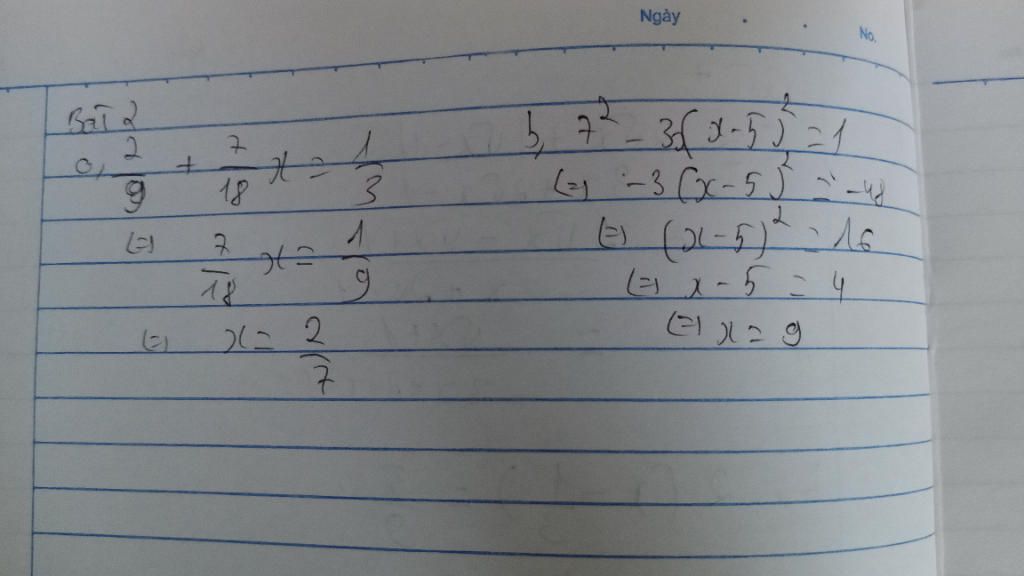 Ngày
No.
Bài 2
a, 2/9 + 7/18 x = 1/3
(=) 7/18 x = 1/9
(=) x = 2/7
b, 7² - 3.(x-5)² = 1
(=) -3(x-5)² = -48
(=) (x-5)² = 16
(=) x - 5 = 4
(=) x = 9